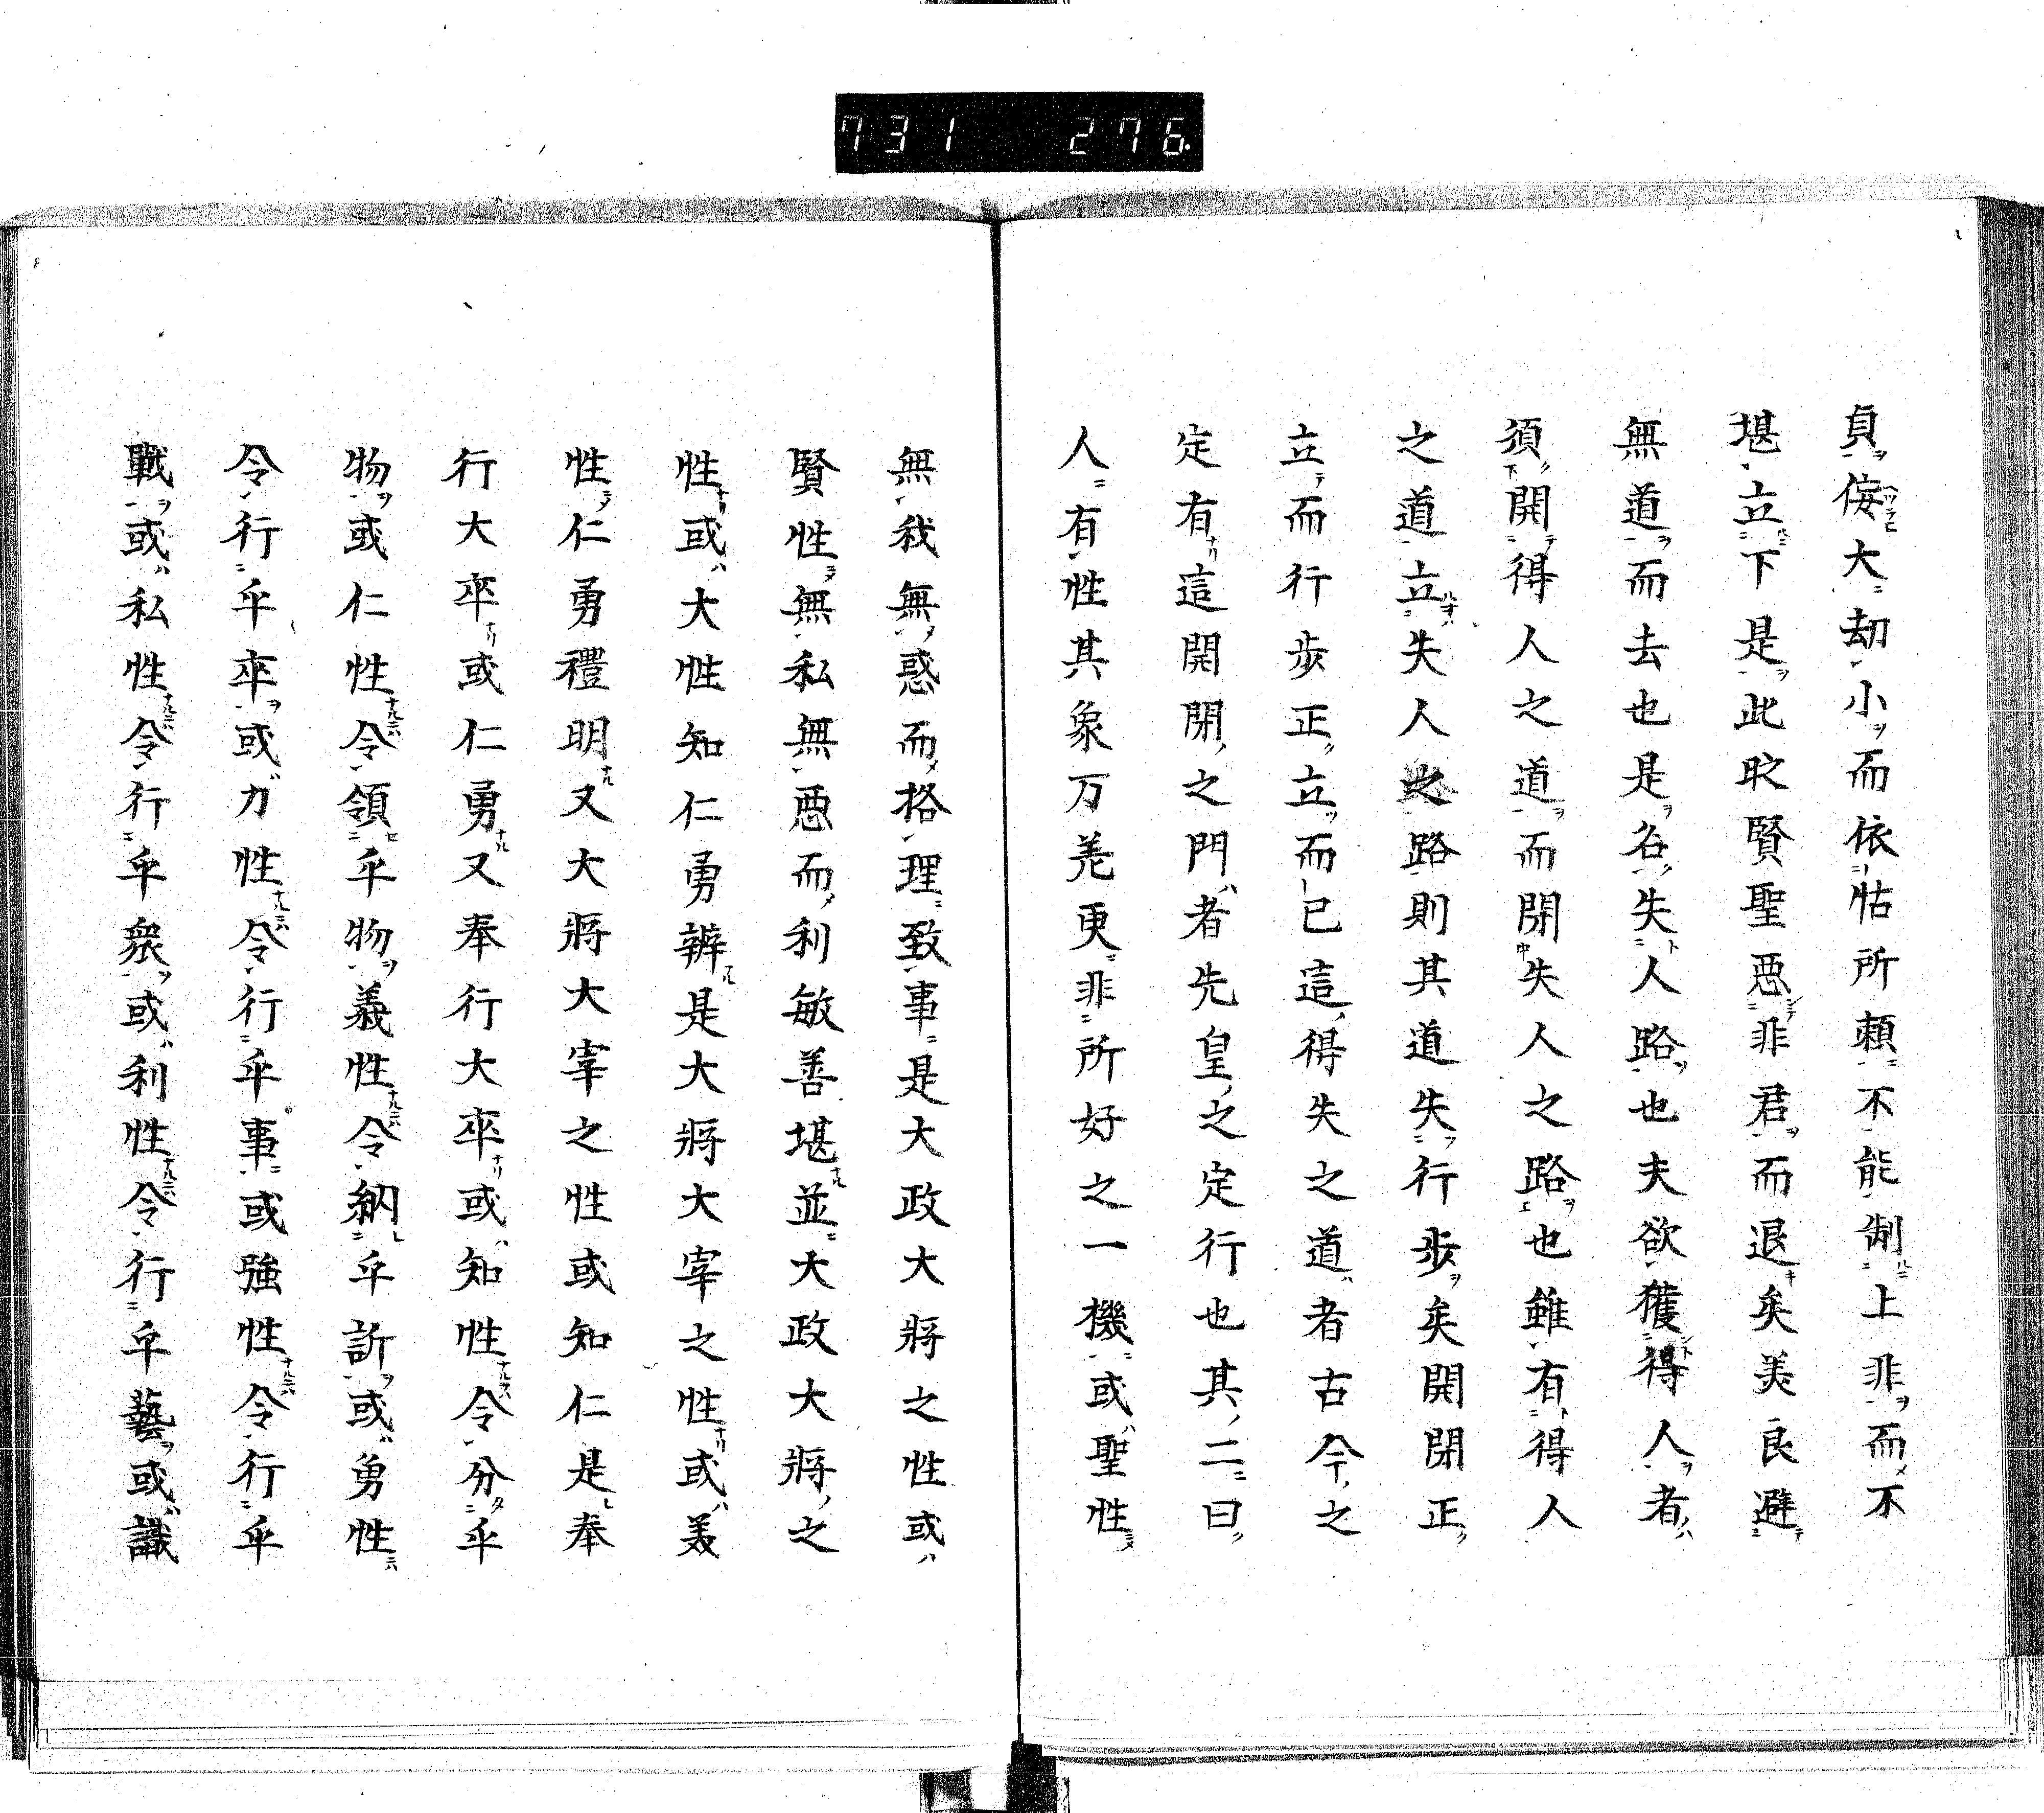 731 276
貞侫大劫小而依怙所頼不能制上非而不
堪立下是此時賢聖悪非君而退矣美良避
無道而去也是名失人路也夫欲獲得人者
須開得人之道而閉失人之路也雖有得人
之道立失人之路則其道失行歩矣開閉正
立而行歩正立而已這得失之道者古今之
定有這開閉之門者先皇之定行也其二曰
人有性其象万差更非所好之一機或聖性
無我無惑而格理致事是大政大將之性或
賢性無私無悪而利敏善堪並大政大將之
性或大性知仁勇辨是大將大宰之性或義
性仁勇禮明又大將大宰之性或知仁是奉
行大卒或仁勇又奉行大卒或知性令分乎
物或仁性令領乎物義性令納乎訴或勇性
令行乎卒或力性令行乎事或強性令行乎
戰或私性令行乎衆或利性令行乎藝或識